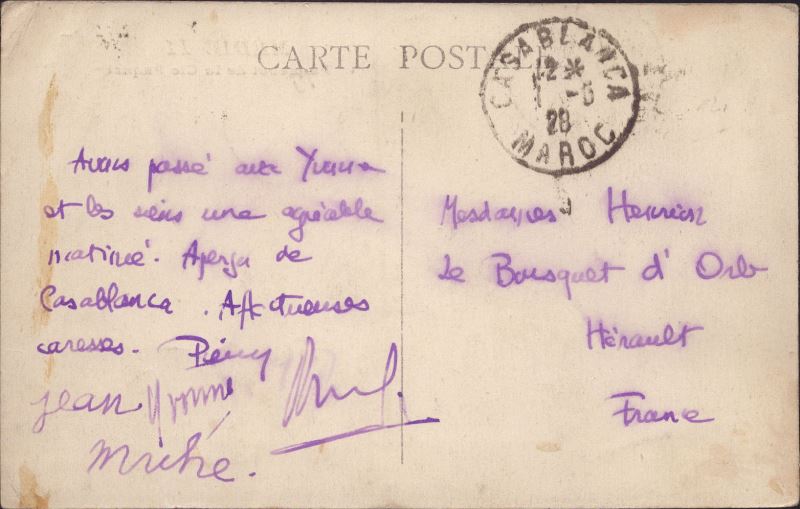 CARTE POSTALE
CASABLANCA
12 *
1 -5
28
MAROC
Avons passé avec Yvonne
et les siens une agréable
matinée. Aperçu de
Casablanca. Affectueuses
caresses.
Jean Yvonne
Miché.
Mesdames Henrion
Le Bousquet d'Orb
Hérault
France